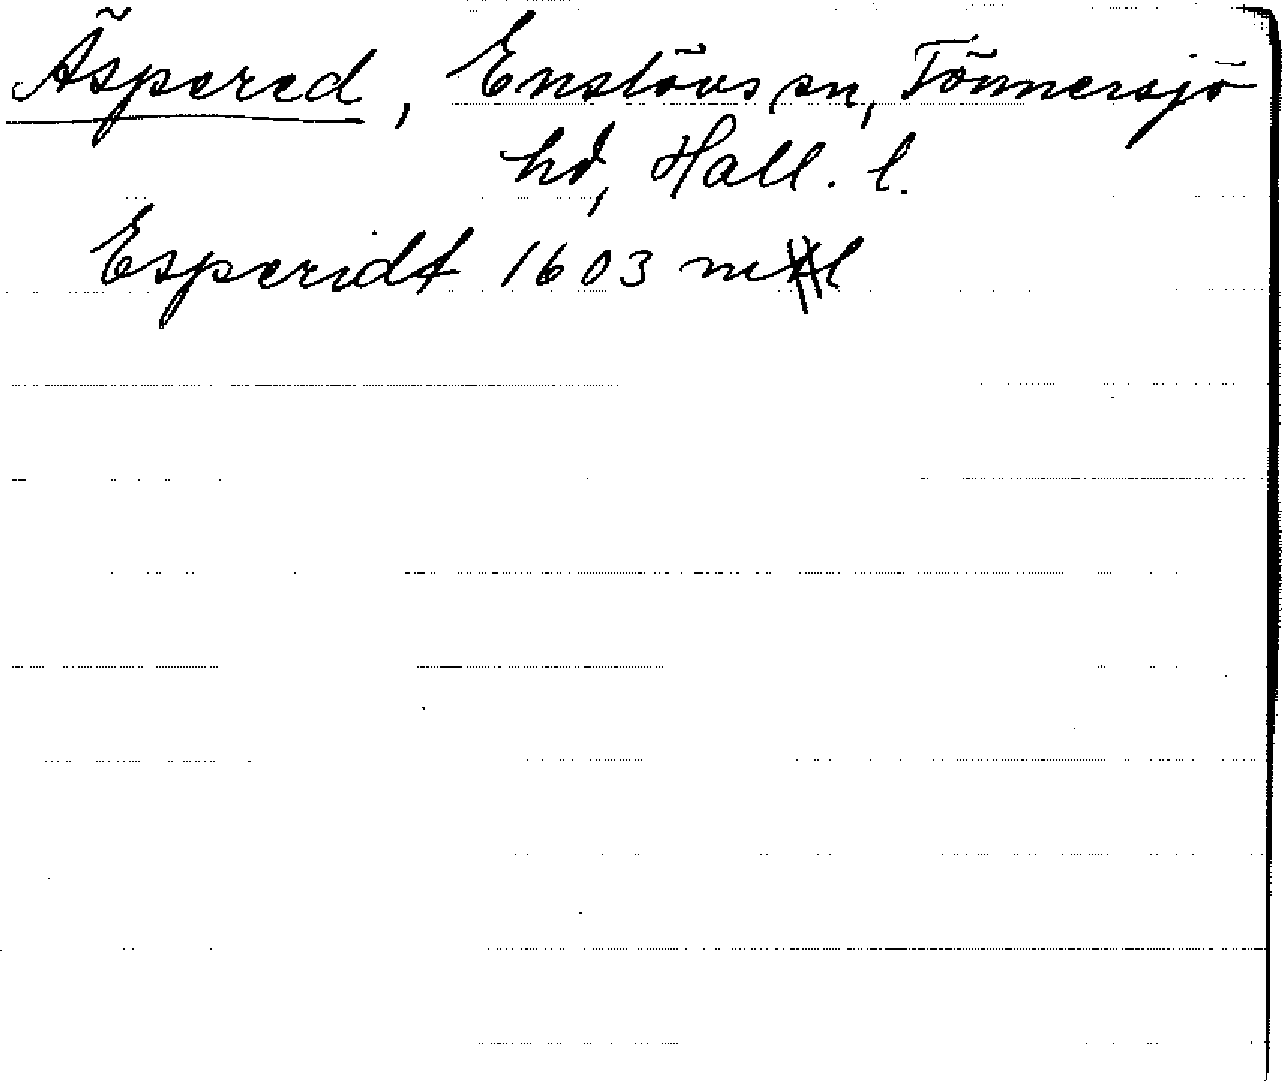 Äspered, Enslövs sn, Tönnersjö
hd, Hall. l.
Esperidt 1603